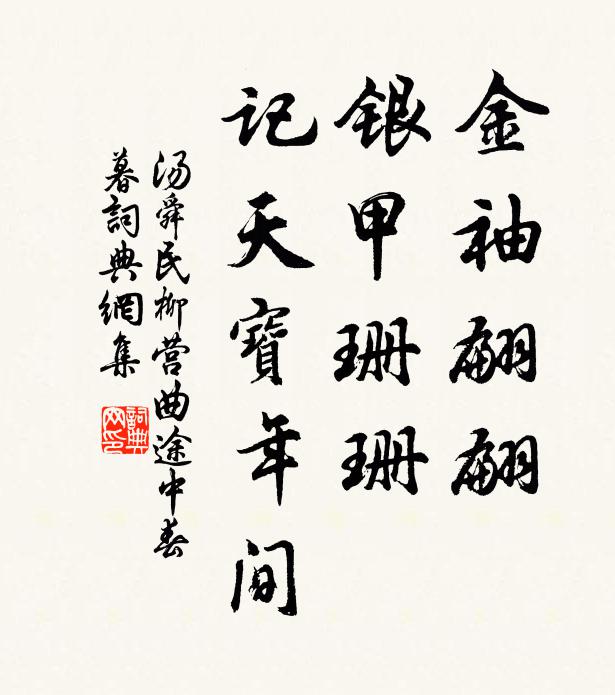 金袖翩翩
銀甲珊珊
记天寶年间
汤舜民柳营曲途中春
暮詞典網集
詞典网印